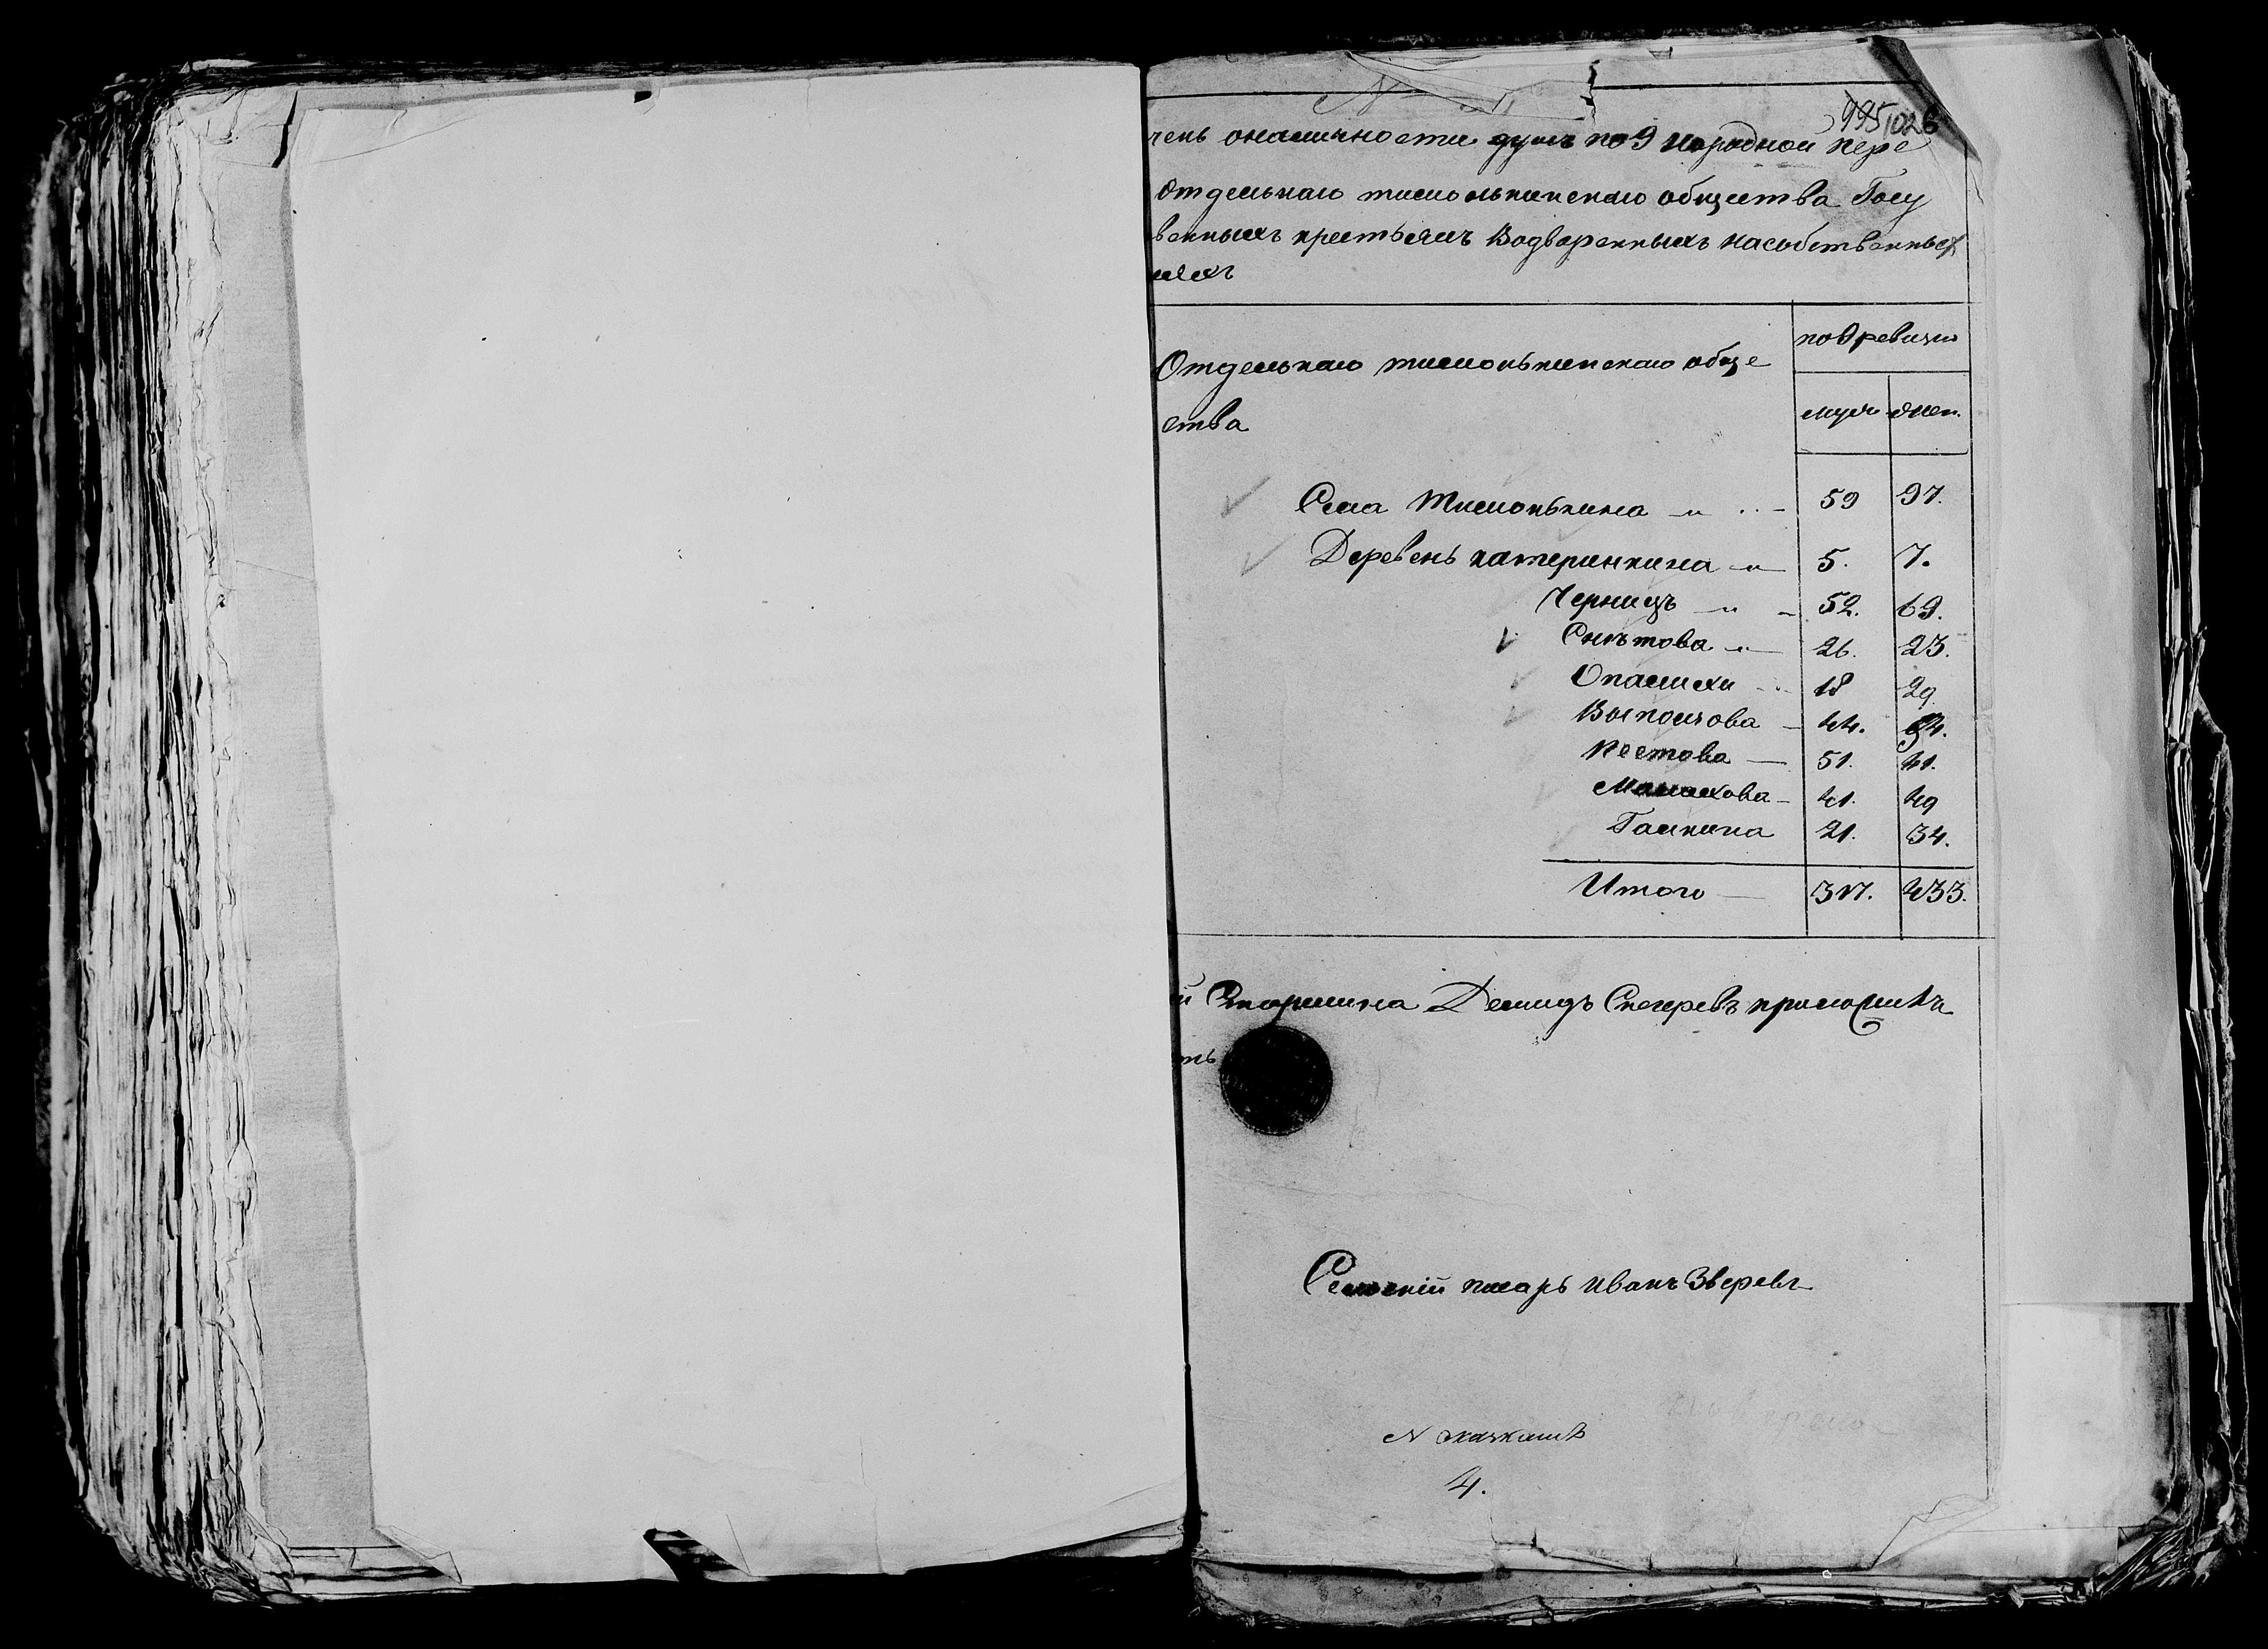 995 1026
чень оналичности душъ по 9 народной пере
Отдельнаго тимонькинскаго общества Госу
венныхъ крестьянъ Водворенныхъ насобственных
млях
Отдельнаго тимонькинскаго обще
ства
по 9 ревизiи
муж жен.
Села Тимонькина 59 97.
Деревень катеринкина 5. 7.
Черницъ 52. 69.
Снѣтова 26. 23.
Опалихи 18 29
Выползова 44. 84.
Пестова 51. 41.
Малахова 41. 49
Галкина 21. 34.
Итого 317. 433.
й Старшина Демидъ Снегревъ приложилъ
ть
Сельскiй писарь Иванъ Зверевъ
4.